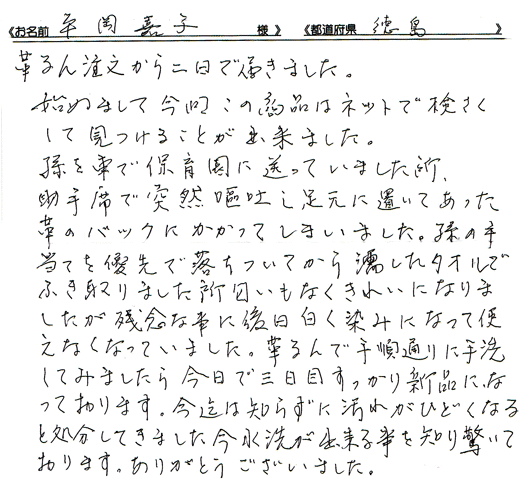 《お名前 平岡 嘉子 様》 《都道府県 徳島 》
革るん注文から二日で届きました。
始めまして今回この商品はネットで検さく
して見つけることが出来ました。
孫を車で保育園に送っていました所、
助手席で突然嘔吐し足元に置いてあった
革のバックにかかってしまいました。孫の手
当てを優先で落ちついてから濡したタオルで
ふき取りました所匂いもなくきれいになりま
したが残念な事に後日白く染みになって使
えなくなっていました。革るんで手順通りに手洗
してみましたら今日で三日目すっかり新品にな
っております。今迄は知らずに汚れがひどくなる
と処分してきました今水洗が出来る事を知り驚いて
おります。ありがとうございました。